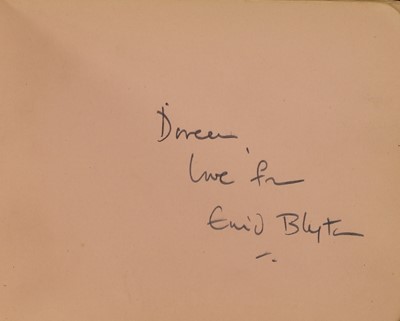 Doreen
love from
Enid Blyton